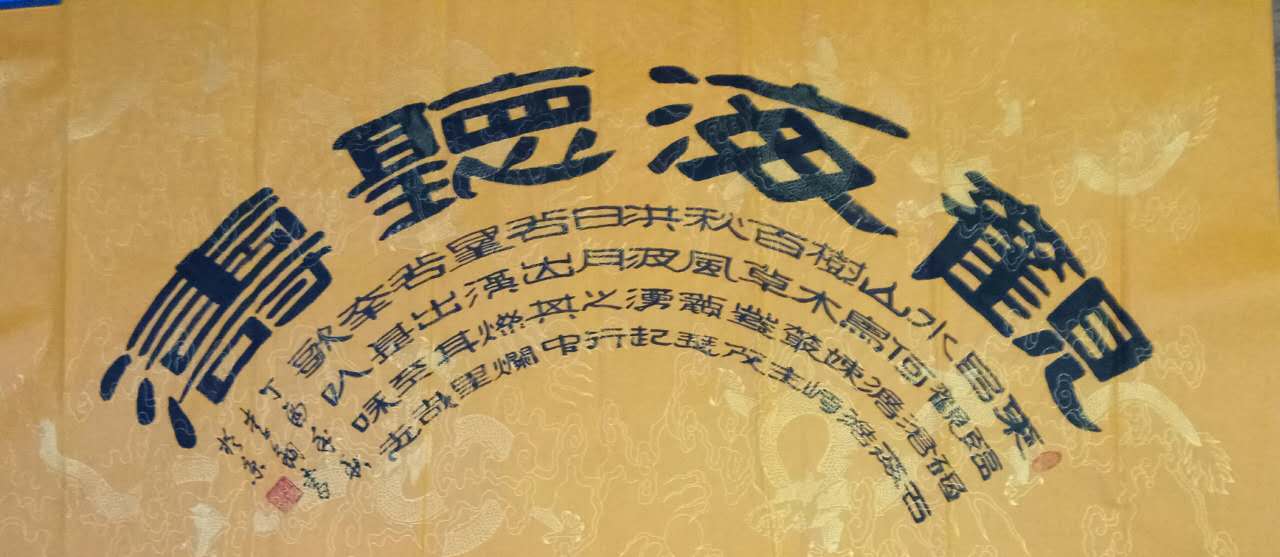 觀海聽濤
東臨碣石
以觀滄海
水何澹澹
山島竦峙
樹木叢生
百草豐茂
秋風蕭瑟
洪波湧起
日月之行
若出其中
星漢燦爛
若出其里
幸甚至哉
歌以咏志
丁酉
書
於京